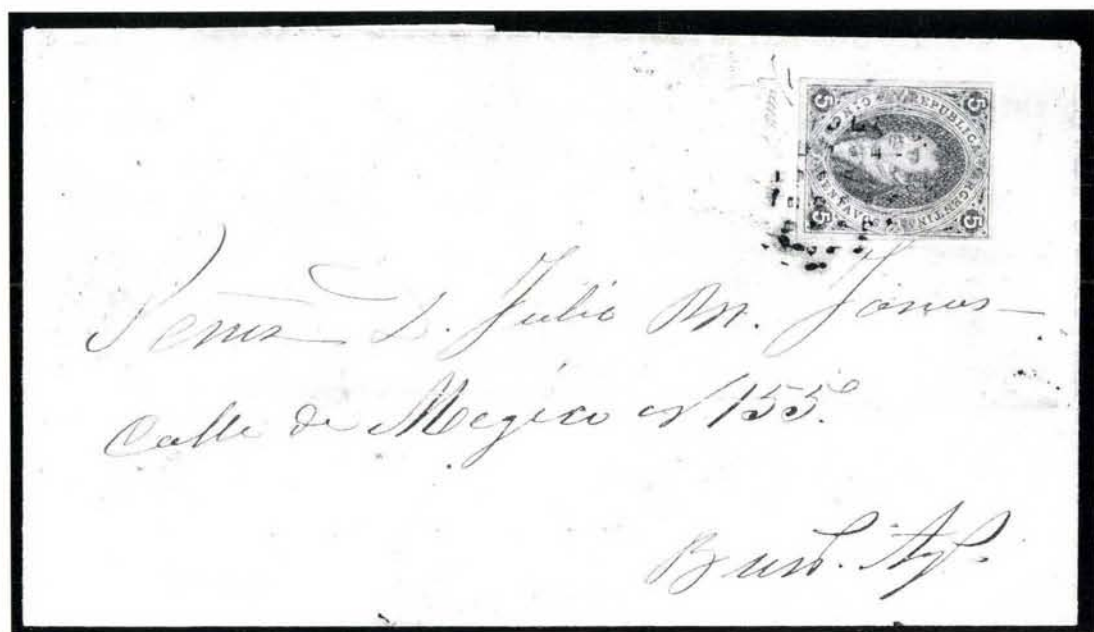 5 5 5 5
REPUBLICA ARGENTINA
CENTAVOS
Señor D. Julio M.
Calle de Megico nº 155.
Buen.ˢ Ay.ˢ